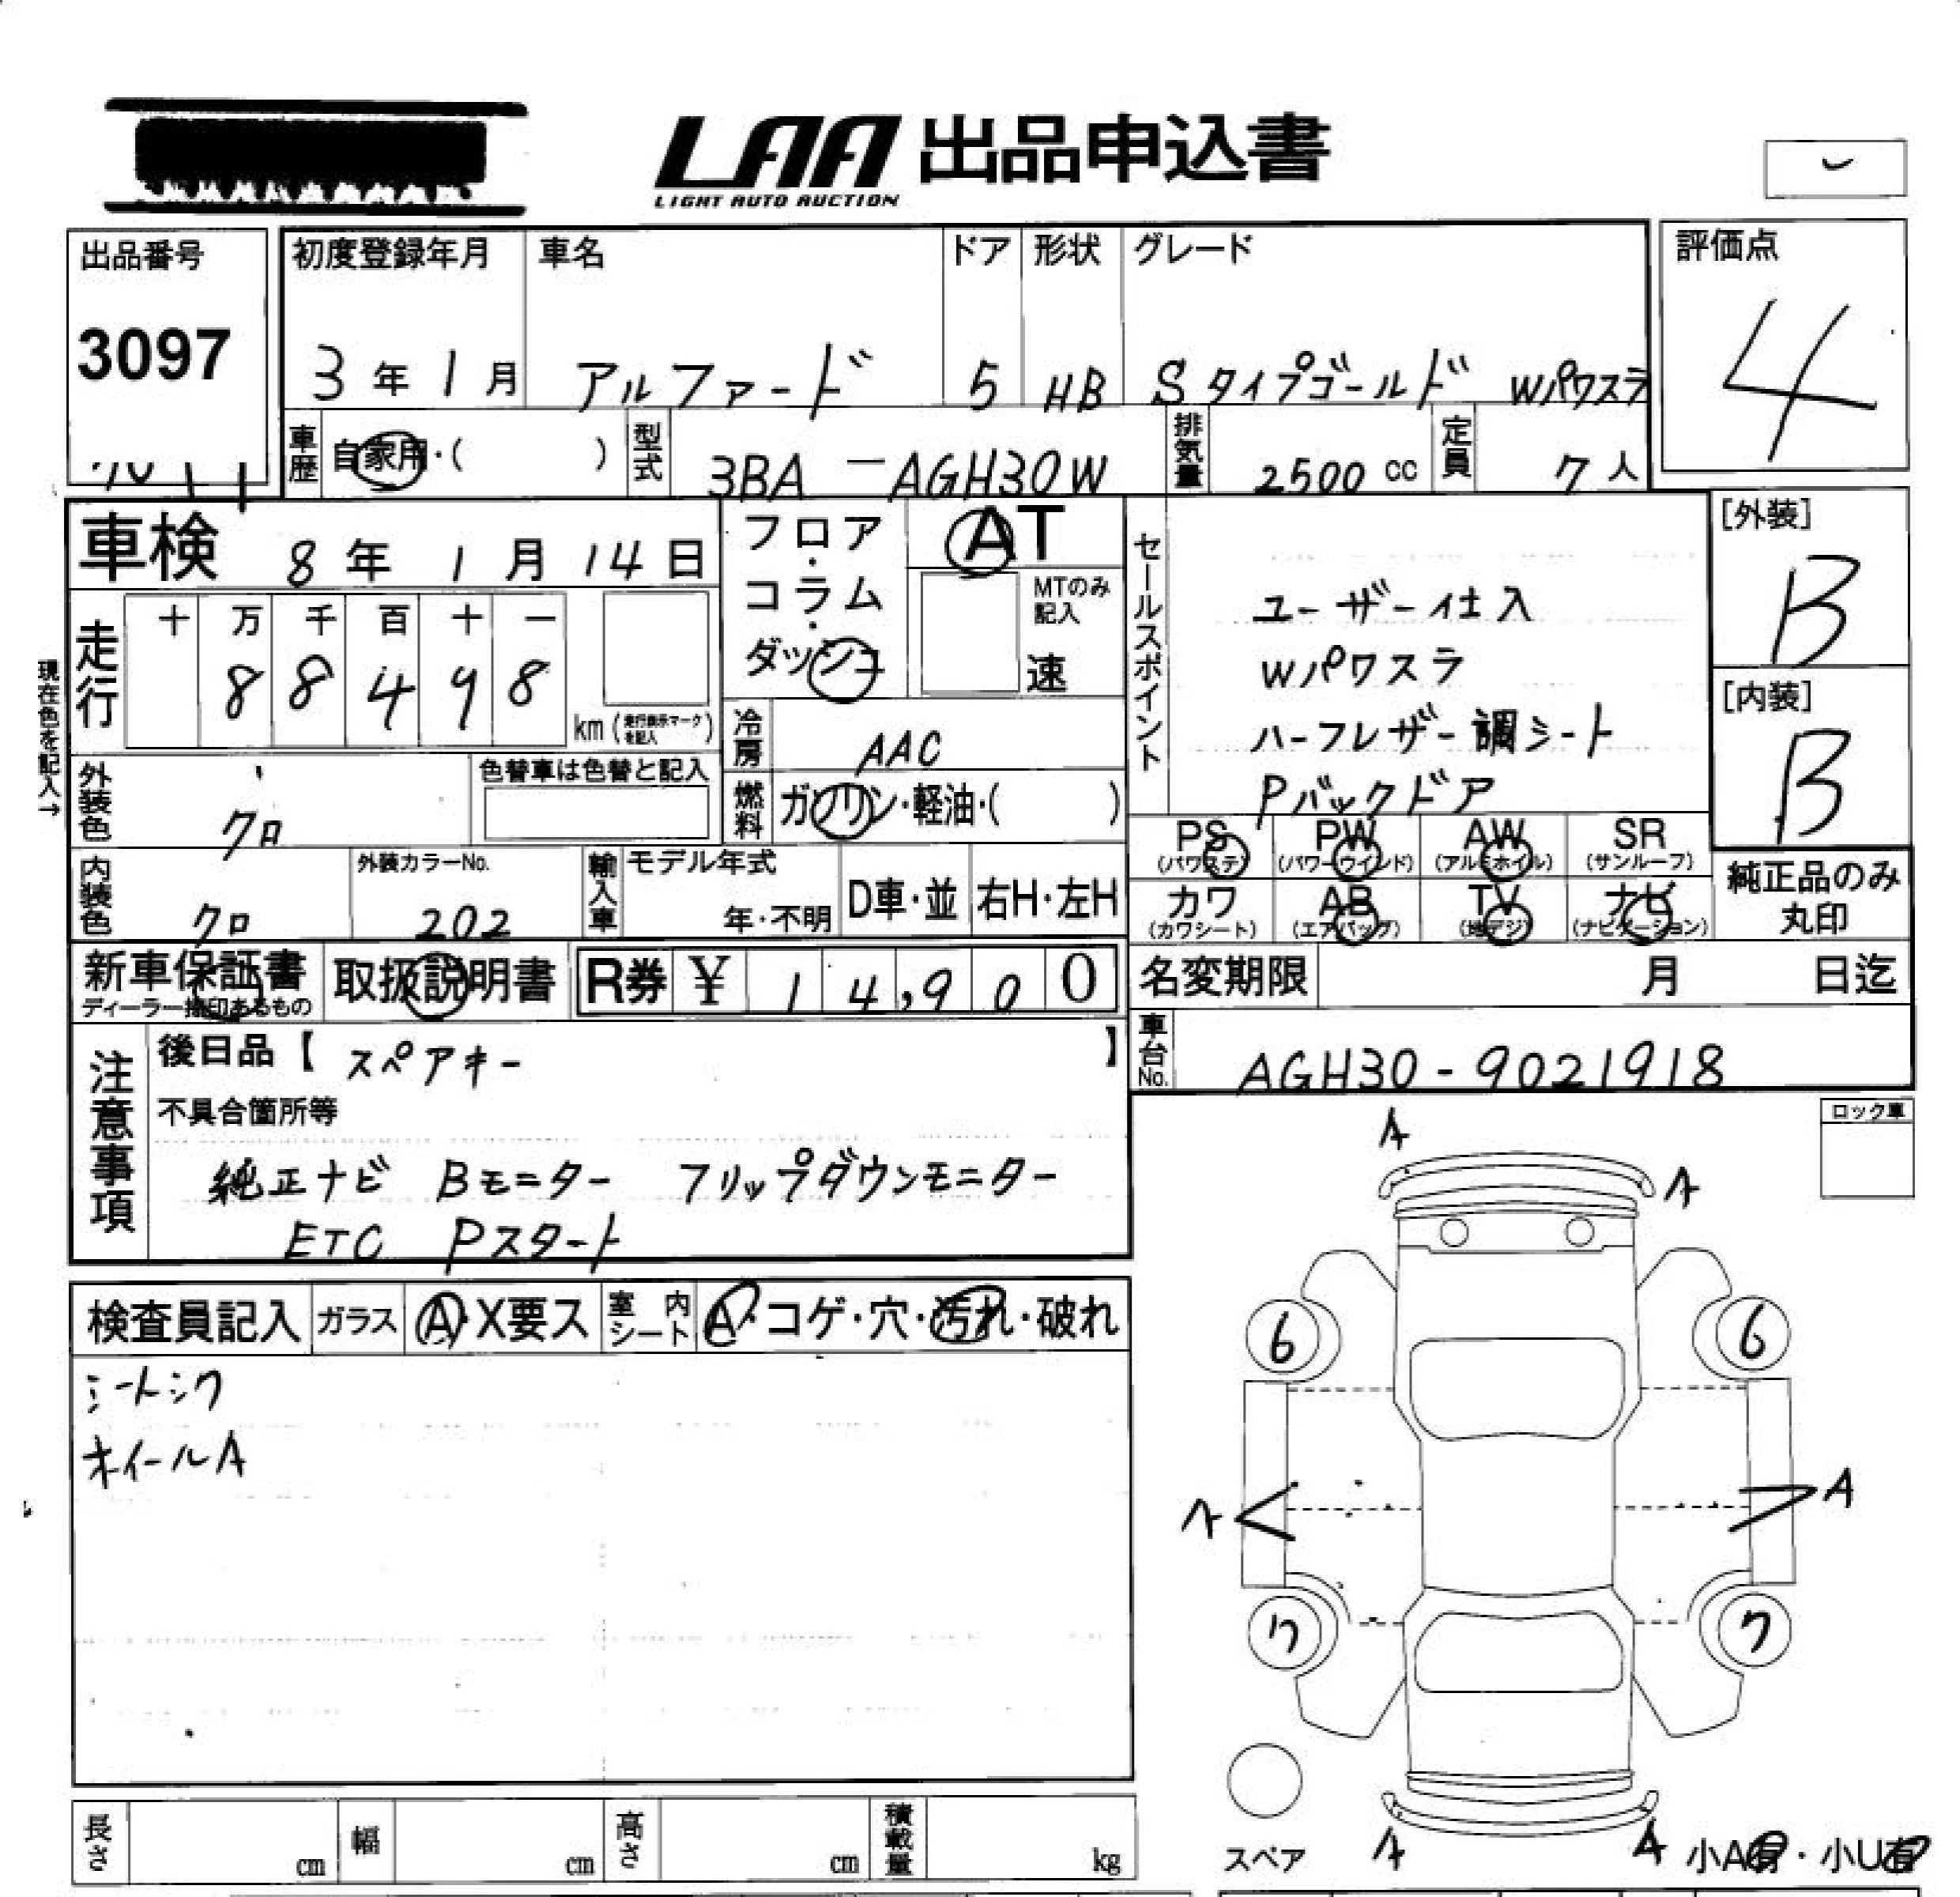 LAA 出品申込書
LIGHT AUTO AUCTION
出品番号
3097
初度登録年月
3年1月
車名
アルファード
ドア
5
形状
HB
グレード
Sタイプゴールド Wパワスラ
評価点
4
車歴
自家用・( )
型式
3BA-AGH30W
排気量
2500 cc
定員
7人
車検 8年1月14日
現在色を記入→
走行
十 万 千 百 十 一
8 8 4 9 8
km(走行表示マークを記入)
フロア・コラム・ダッシュ
AT
MTのみ記入
速
冷房
AAC
燃料
ガソリン・軽油・( )
外装色
クロ
色替車は色替と記入
内装色
クロ
外装カラーNo.
202
輸入車
モデル年式
年・不明
D車・並
右H・左H
セールスポイント
ユーザー仕入
Wパワスラ
ハーフレザー調シート
Pバックドア
[外装]
B
[内装]
B
PS
(パワステ)
PW
(パワーウインド)
AW
(アルミホイル)
SR
(サンルーフ)
カワ
(カワシート)
AB
(エアバッグ)
TV
(地デジ)
ナビ
(ナビゲーション)
純正品のみ
丸印
新車保証書
ディーラー捺印あるもの
取扱説明書
R券 ¥ 14,900
名変期限 月 日迄
車台No.
AGH30-9021918
注意事項
後日品【スペアキー】
不具合箇所等
純正ナビ Bモニター フリップダウンモニター
ETC Pスタート
ロック車
検査員記入
ガラス
A・X要ス
室内シート
A・コゲ・穴・汚れ・破れ
シートシワ
ホイールA
A
A
6
6
A
A
7
7
スペア
A
A
小A有・小U有
長さ cm
幅 cm
高さ cm
積載量 kg